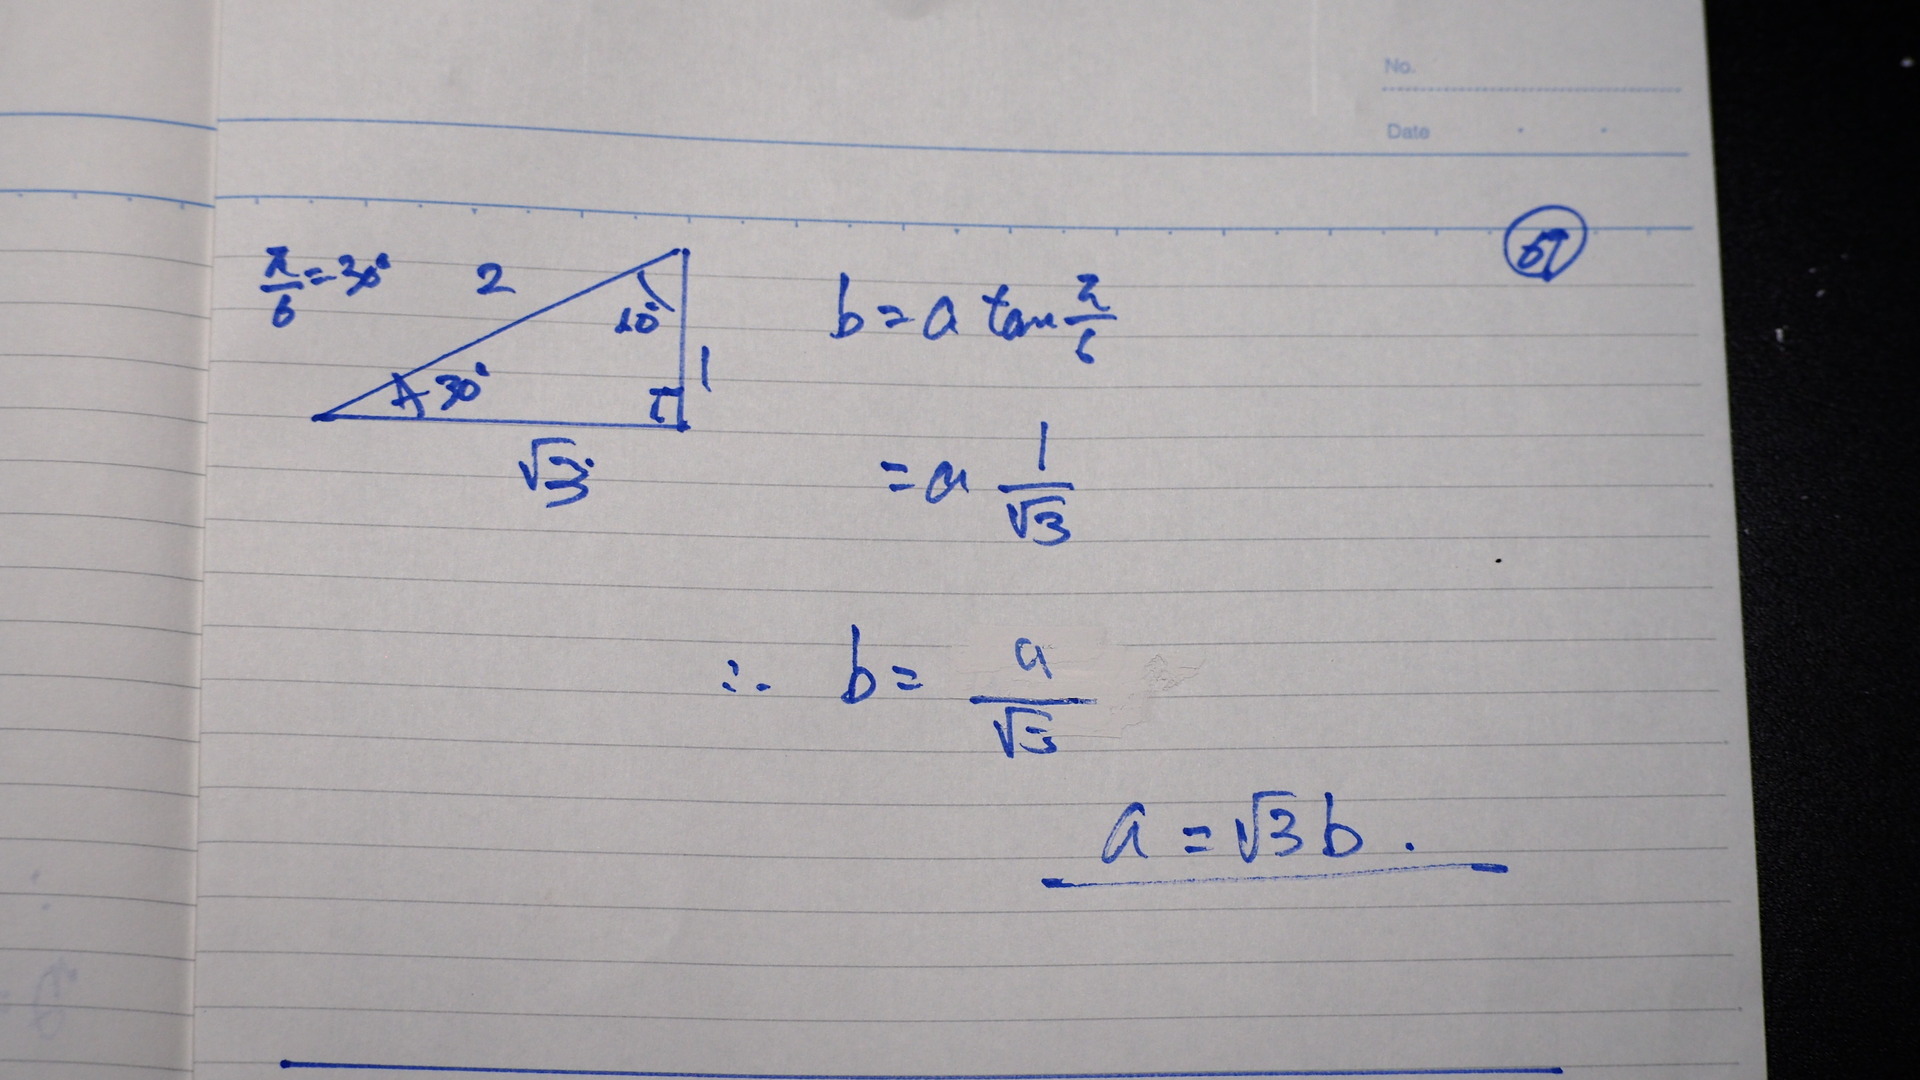 No.
Date
π/6 = 30°
2
30°
1
√3
b = a tan π/6
= a 1/√3
∴ b = a/√3
a = √3 b.